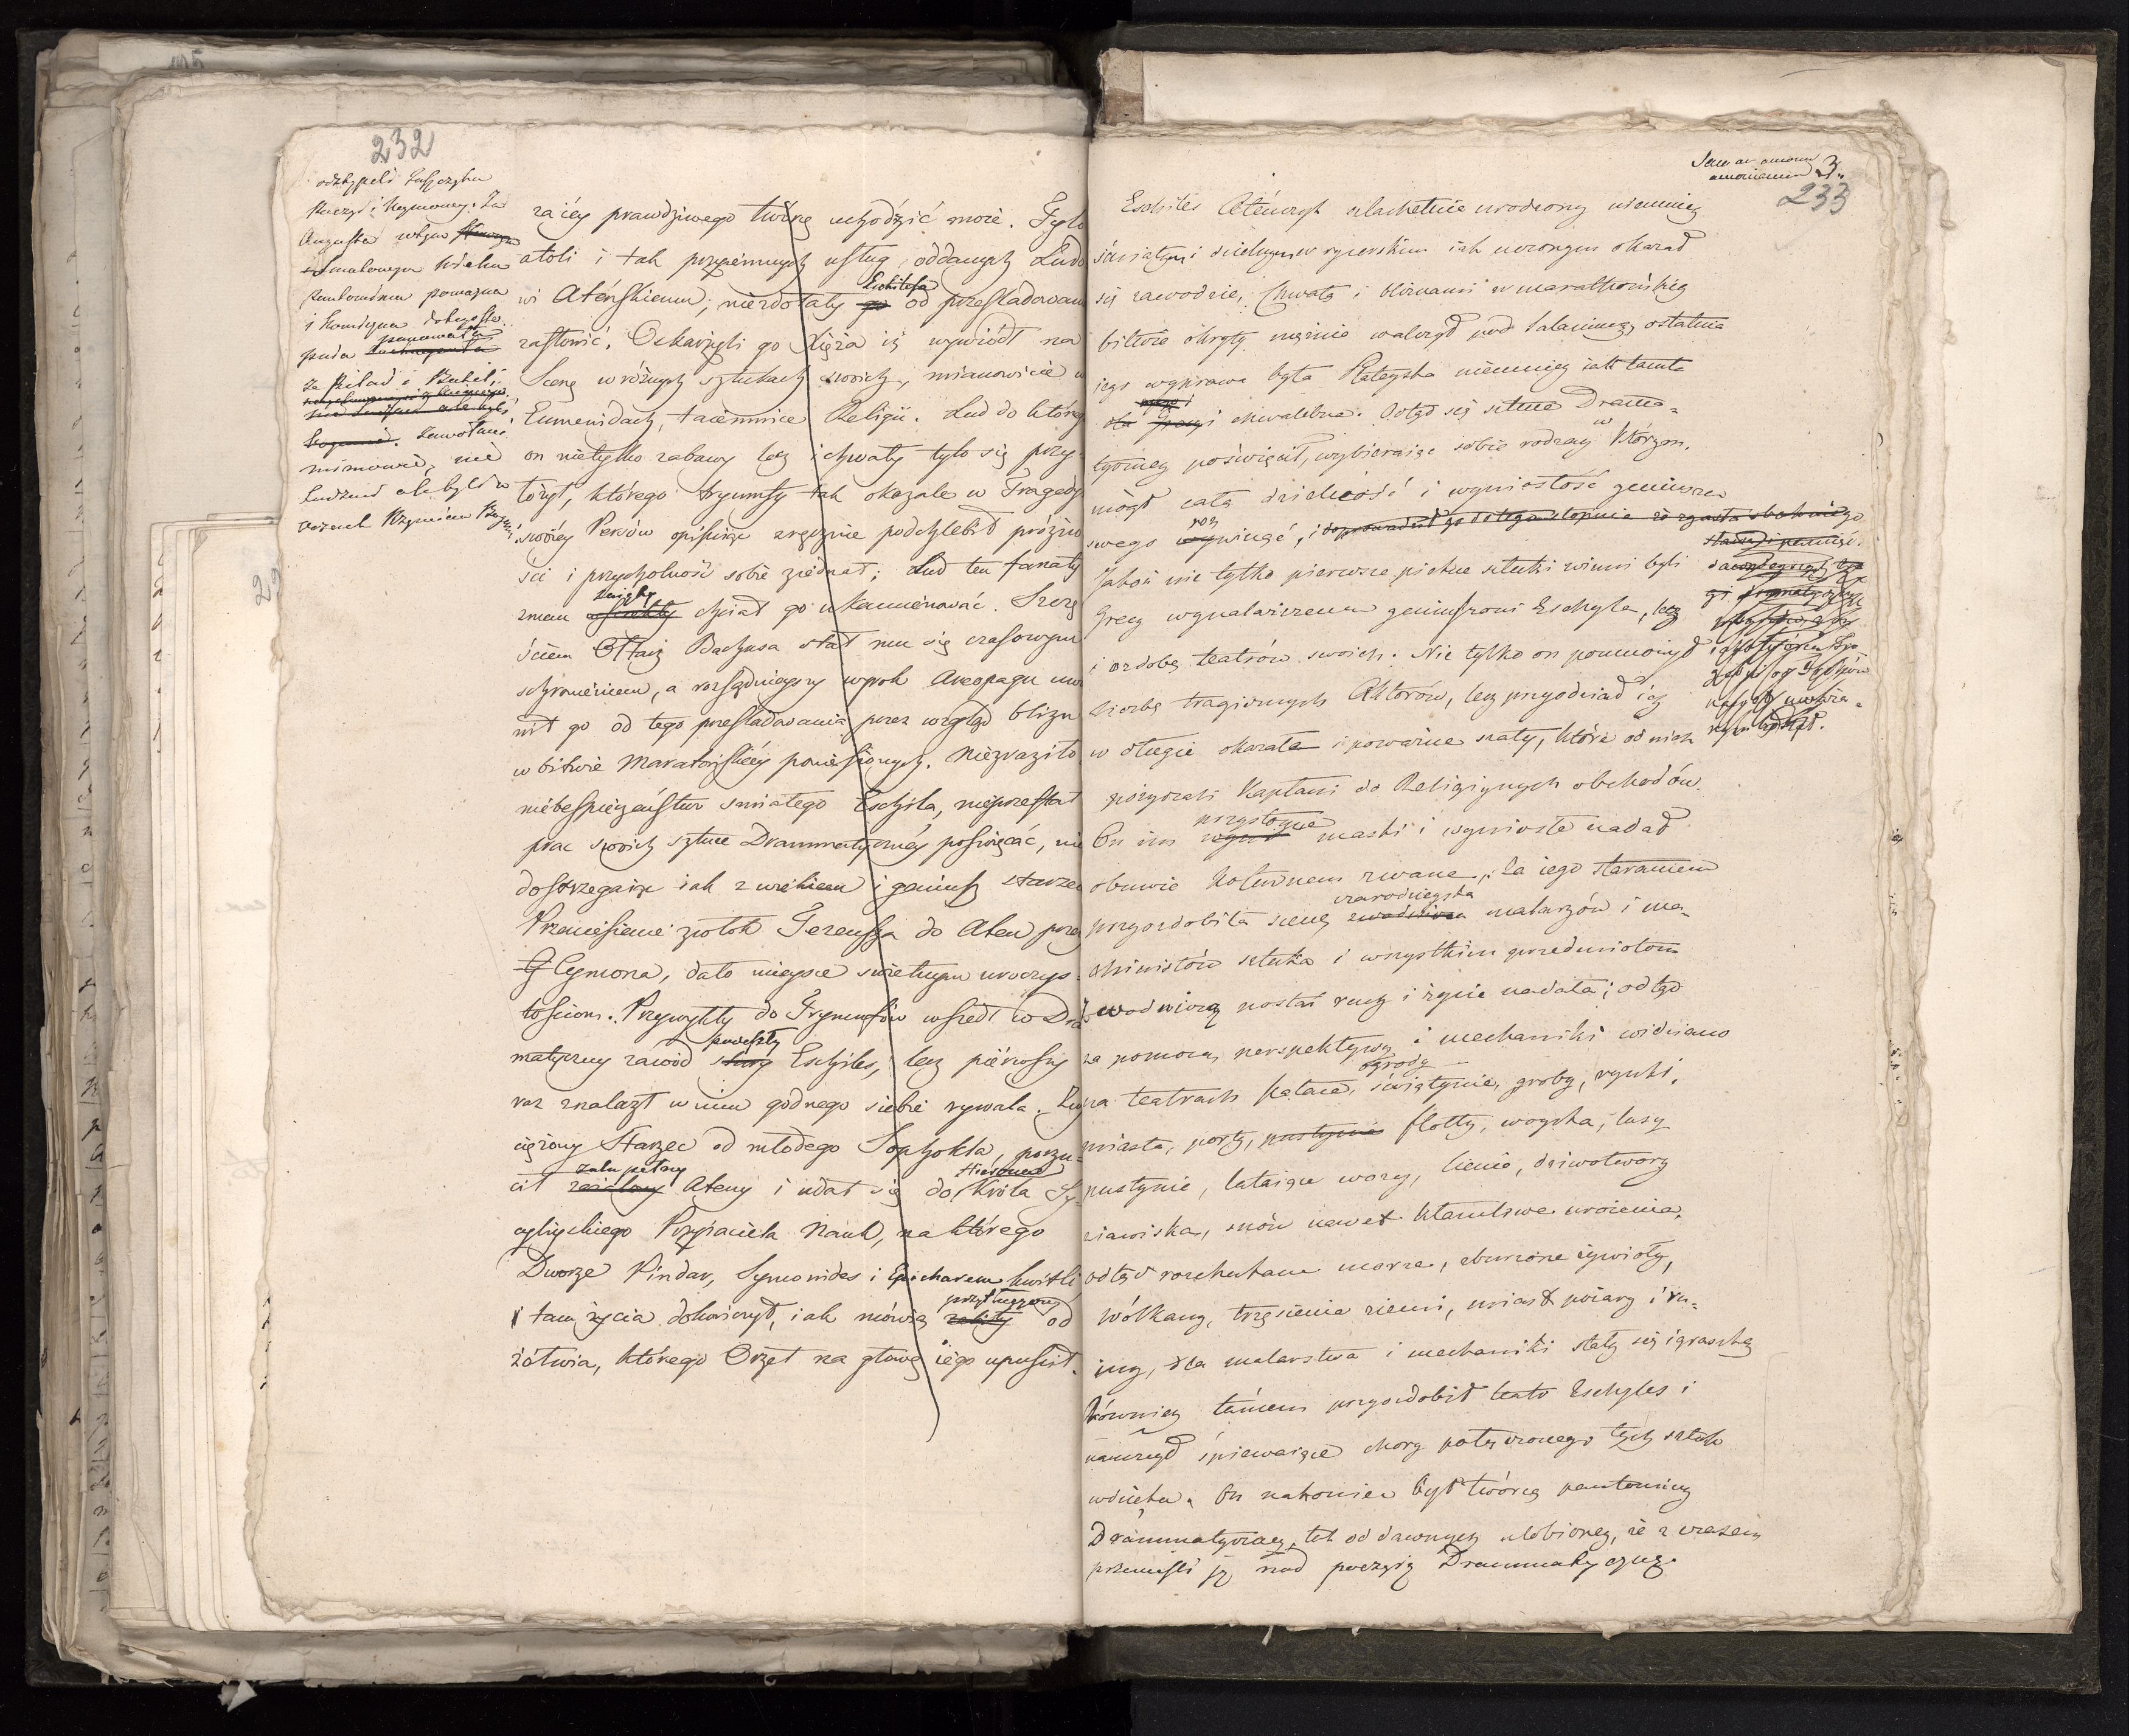 232
odstąpili
Augusta
Pantomima poważna
i Komiczna
panowała
za Pilad i Batil,
Zawołani
mimowie, nie
ludzmi ale byli w
oczach Rzymian Bogami.
raiéy prawdziwego twórcę uchodzić może. Tylo
atoli i tak przyiemnych usług, oddanych Ludo
wi Ateńskiemu, niezdołały go Eschilesa od prześladowan
zasłonić. Oskarżyli go Xięża iż wywiódł na
Scenę w różnych sztukach swoich, mianowicie w
Eumenidach, taiemnice Religii. Lud do które
on nietylko zabawy lecz i chwały tylo się przy
łożył, którego tryumfy tak okazale w Tragedy
swoiéy Persów opisuiąc zręcznie podchlebił próżno
ści i przychylność sobie ziednał; Lud ten fanaty
zmem zaięty chciał go ukamienować. Szczę
ściem Ołtarz Bachusa stał mu się czasowym
schronieniem, a rozsądnieyszy wyrok Areopagu uwo
nił go od tego prześladowania przez wzgląd blizn
w bitwie Maratońskiéy poniesionych. Niezraziło
niebespieczeństwo śmiałego Eschila, nieprzestał
prac swoich sztuce Drammatycznéy poświęcać, nie
dostrzegaiąc iak z wiekiem i geniusz starzeie
Przeniesienie zwłok Tezeusza do Aten przez
Cymona, dało mieysce świetnym uroczys-
tościom. Przywykły do Tryumfów wszedł w Dra
matyczny zawód stary Eschiles, lecz pierwszy
raz znalazł w nim godnego siebie rywala. Zwy
ciężony Starzec od młodego Sophokla, porzu-
cił żalu pełny Ateny i udał się do Hierona Króla Sy-
cyliyskiego Przyiaciela Nauk, na którego
Dworze Pindar, Symonides i Epicharem kwitli
i tam życia dokończył, iak mówią przytłuczony od
żółwia, którego Orzeł na głowę iego upuścił.
3.
233
Eschiles Ateńczyk szlachetnie urodzony niemniey
świątym i dzielnym w rycerskim iak uczonym okazał
się zawodzie. Chwałą i bliznami w marathońskiey
bitwie okryty mężnie walczył pod Salaminą, ostatnia
iego wyprawa była Plateyska niemniey iak tamte
chwalebna. Odtąd się sztuce Drama-
tyczney poświęcił, wybieraiąc sobie rodzay w którym
mógł całą dzielność i wyniosłość geniuszu
swego rozwinąć, i doprowadził go do tego stopnia że
Jakoż nie tylko pierwsze piękne sztuki winni byli
Grecy wynalazczemu geniuszowi Eschyla, lecz
i ozdobę teatrów swoich. Nie tylko on pomnożył
liczbę tragicznych Aktorów, lecz przyodział ich
w długie okazałe i poważne szaty, które od nich
pożyczali Kapłani do Religiynych obchodów.
On im przystoyne maski i wyniosłe nadał
obuwie Koturnem zwane. Za iego staraniem
przyozdobiła scenę czarodzieyska malarzów i ma-
chinistów sztuka i wszystkim przedmiotom
zwodniczą postać ruch i życie nadała; odtąd
za pomocą perspektywy i mechaniki widziano
na teatrach pałace, ogrody świątynie, groby, rynki,
miasta, porty, pustynie flotty, woyska, lasy
pustynie, lataiące wozy, cienie, dziwotwory
ziawiska, snów nawet kłamliwe uroienia,
odtąd rozchukane morze, zburzone żywioły,
wólkany, trzęsienia ziemi, miast pożary i ru-
iny, dla malarstwa i mechaniki stały się igraszką
Równiey tańcem przyozdobił teatr Eschyles i
nauczył śpiewaiące chory połączonego tych sztuk
wdzięku. On nakoniec był twórcą pantominy
Drammatyczney, tek od dawnych ulubioney, że z czasem
przenieśli ją nad poezyią Drammatyczną.